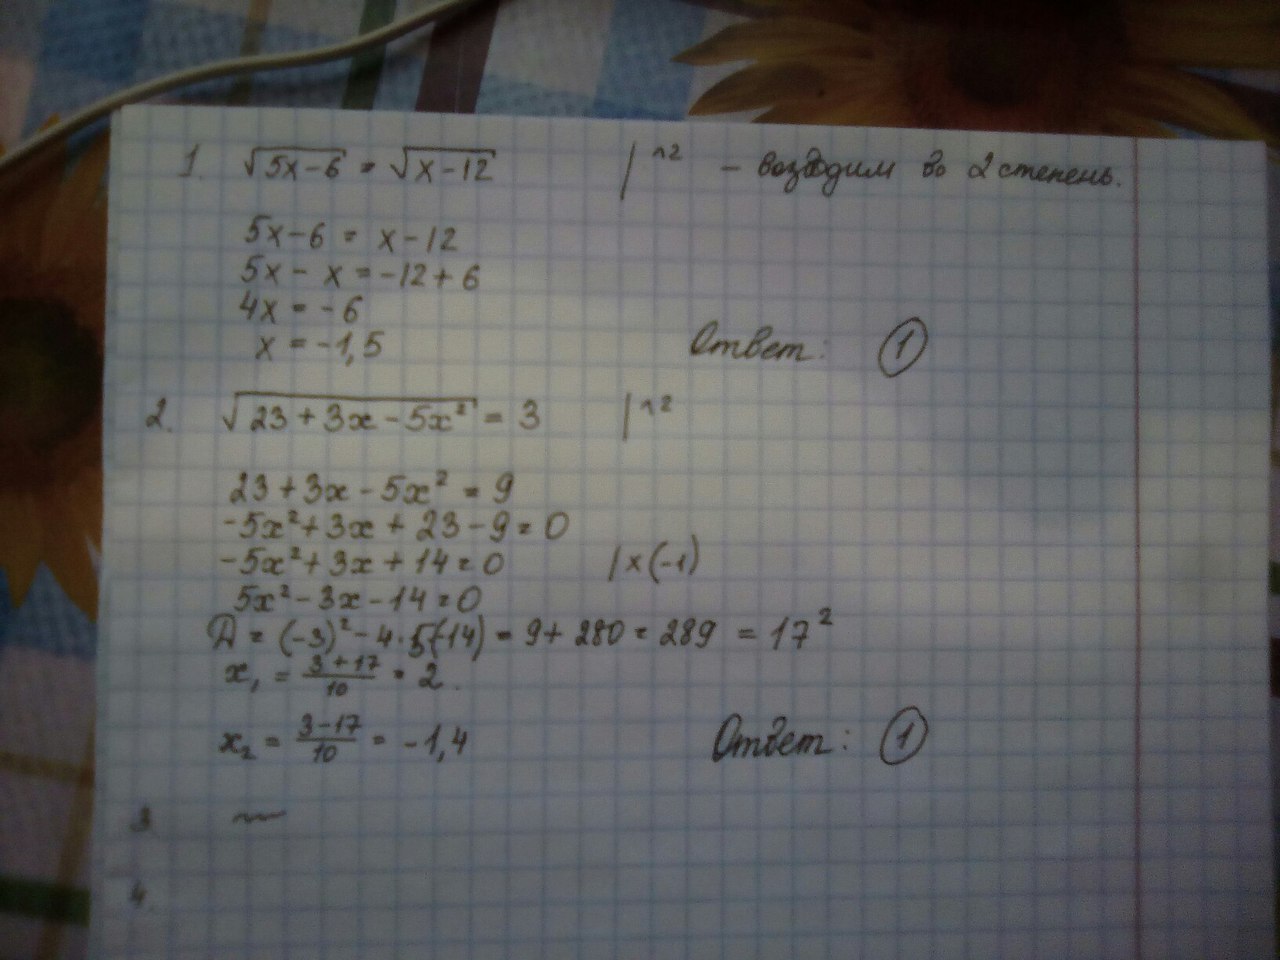 1. √5x-6 = √x-12 |^2 - возводим во 2 степень.
5x-6 = x-12
5x - x = -12+6
4x = -6
x = -1,5 Ответ: 1
2. √23+3x-5x² = 3 |^2
23+3x-5x² = 9
-5x²+3x+23-9=0
-5x²+3x+14=0 |×(-1)
5x²-3x-14=0
Д = (-3)²-4·5(-14) = 9+280 = 289 = 17²
x₁ = (3+17)/10 = 2.
x₂ = (3-17)/10 = -1,4 Ответ: 1
3. ~
4.